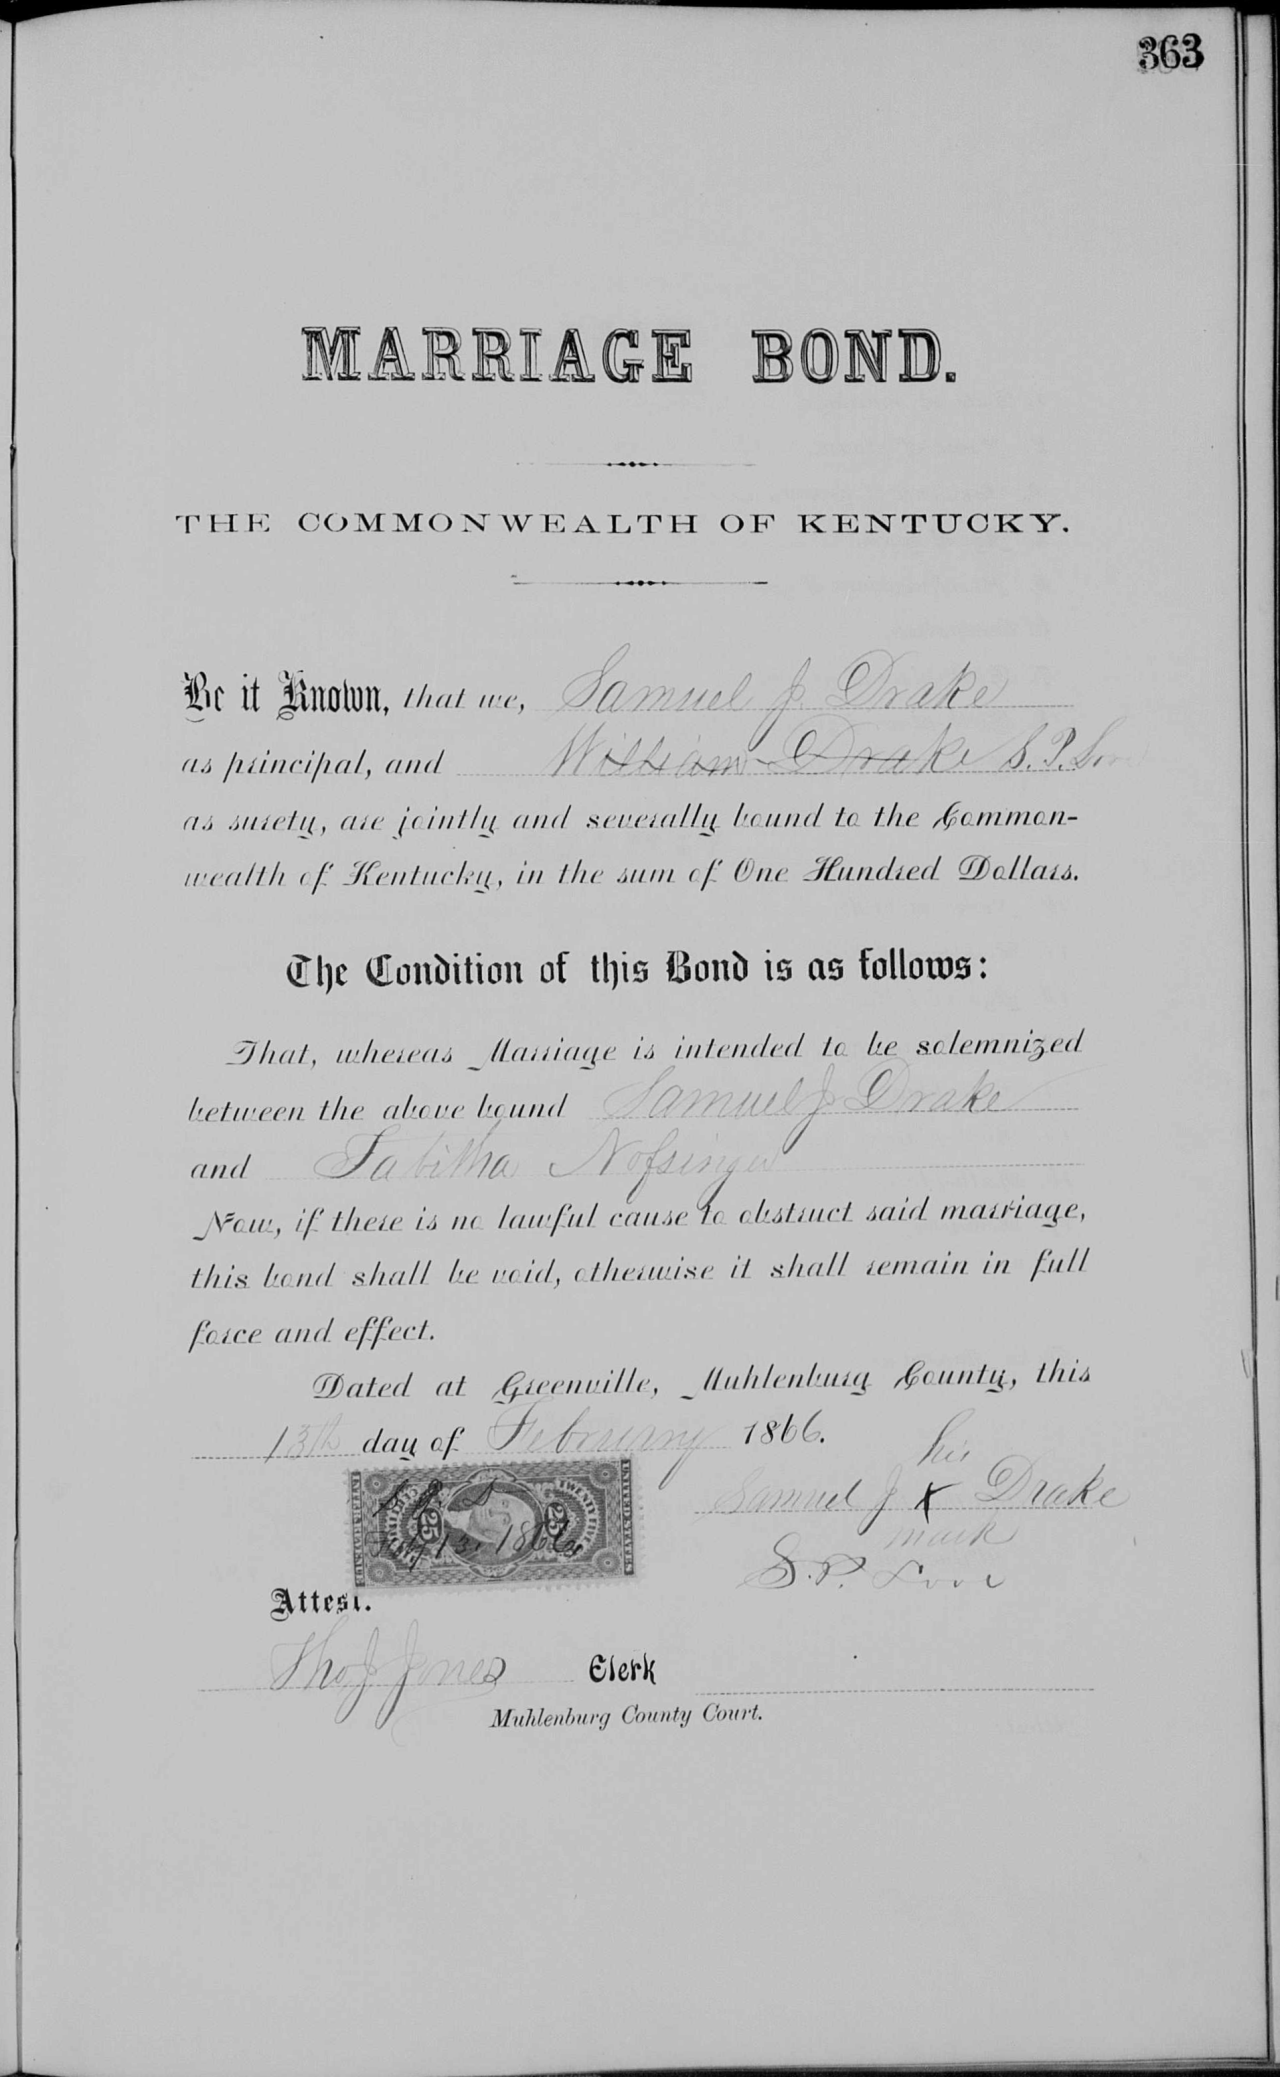 363
MARRIAGE BOND.
THE COMMONWEALTH OF KENTUCKY.
Be it Known, that we, Samuel J. Drake
as principal, and William Drake S. P. Love
as surety, are jointly and severally bound to the Common-
wealth of Kentucky, in the sum of One Hundred Dollars.
The Condition of this Bond is as follows:
That, whereas Marriage is intended to be solemnized
between the above bound Samuel J. Drake
and Tabitha Nofsinger
Now, if there is no lawful cause to obstruct said marriage,
this bond shall be void, otherwise it shall remain in full
force and effect.
Dated at Greenville, Muhlenburg County, this
13th day of February 1866.
his
Samuel J x Drake
mark
S. P. Love
25 25
Feby 13. 1866
Attest.
Tho J. Jones Clerk
Muhlenburg County Court.